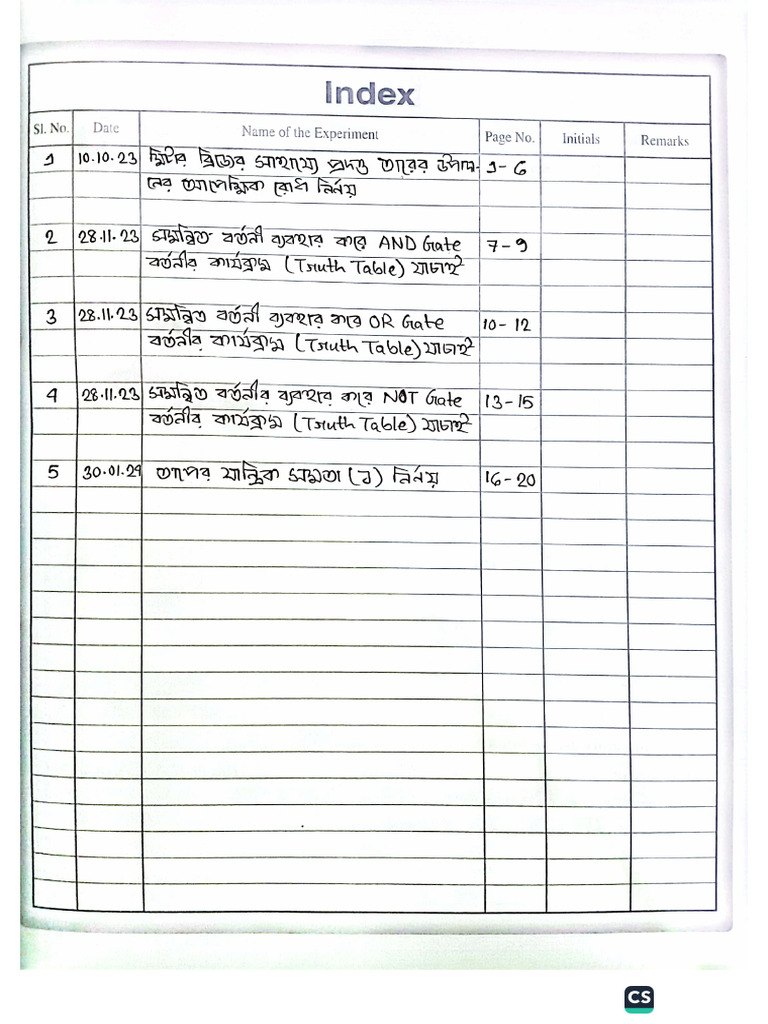 Index
Sl. No. Date Name of the Experiment Page No. Initials Remarks
1 10.10.23 মিটার ব্রিজের সাহায্যে প্রদত্ত তারের উপাদা- 1-6
নের আপেক্ষিক রোধ নির্ণয়
2 28.11.23 সমন্বিত বর্তনী ব্যবহার করে AND Gate 7-9
বর্তনীর কার্যক্রম (Truth Table) যাচাই
3 28.11.23 সমন্বিত বর্তনী ব্যবহার করে OR Gate 10-12
বর্তনীর কার্যক্রম (Truth Table) যাচাই
4 28.11.23 সমন্বিত বর্তনীর ব্যবহার করে NOT Gate 13-15
বর্তনীর কার্যক্রম (Truth Table) যাচাই
5 30.01.24 তাপের যান্ত্রিক সমতা (J) নির্ণয় 16-20
CS